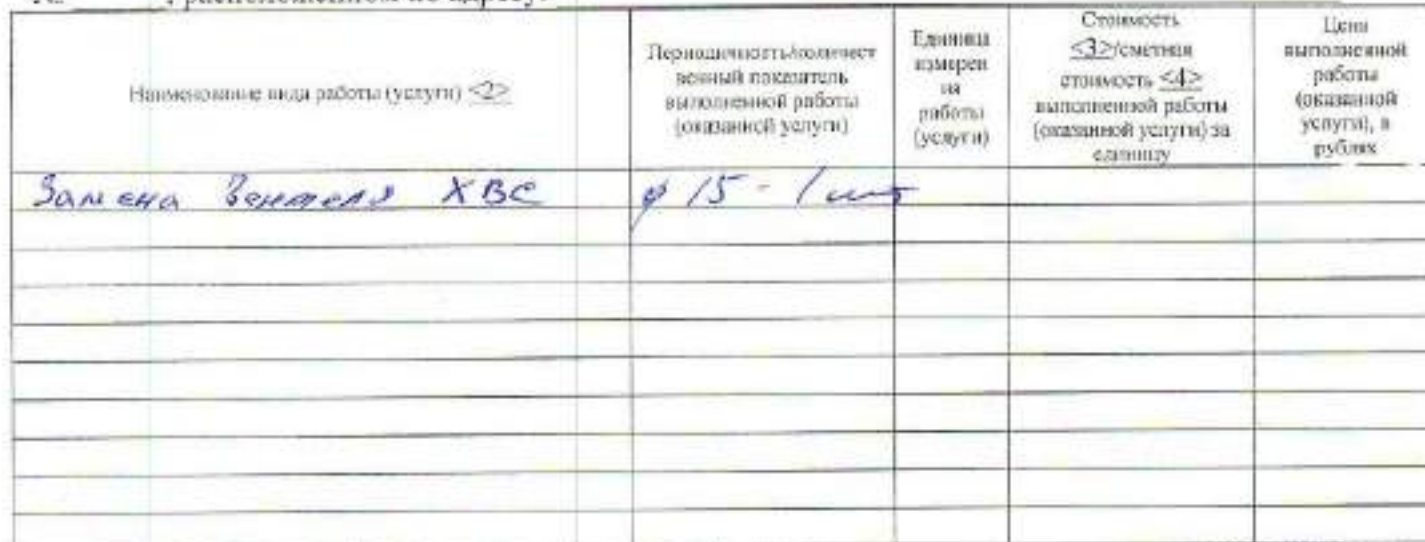 , расположенном по адресу:
Наименование вида работы (услуги) <2>
Периодичность/количест
венный показатель
выполненной работы
(оказанной услуги)
Единица
измерен
ия
работы
(услуги)
Стоимость
<3>/сметная
стоимость <4>
выполненной работы
(оказанной услуги) за
единицу
Цена
выполненной
работы
(оказанной
услуги), в
рублях
Замена Вентеля ХВС
ø 15 - 1 шт